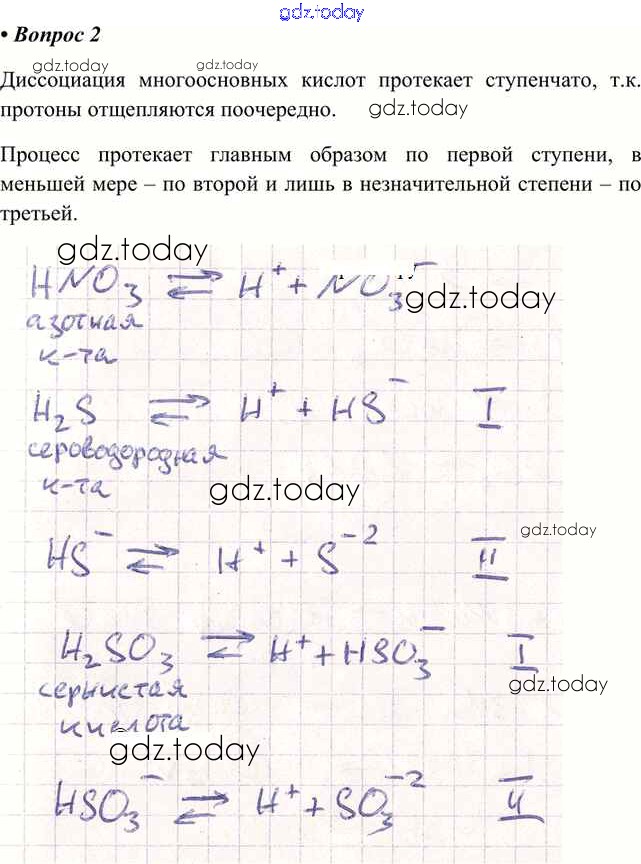 gdz.today
• Вопрос 2
gdz.today gdz.today
Диссоциация многоосновных кислот протекает ступенчато, т.к.
протоны отщепляются поочередно. gdz.today
Процесс протекает главным образом по первой ступени, в
меньшей мере – по второй и лишь в незначительной степени – по
третьей.
gdz.today
HNO₃ ⇄ H⁺ + NO₃⁻
gdz.today
азотная
к-та
H₂S ⇄ H⁺ + HS⁻ I
сероводородная
к-та
gdz.today
gdz.today
HS⁻ ⇄ H⁺ + S⁻² II
H₂SO₃ ⇄ H⁺ + HSO₃⁻ I
gdz.today
сернистая
кислота
gdz.today
HSO₃⁻ ⇄ H⁺ + SO₃⁻² II